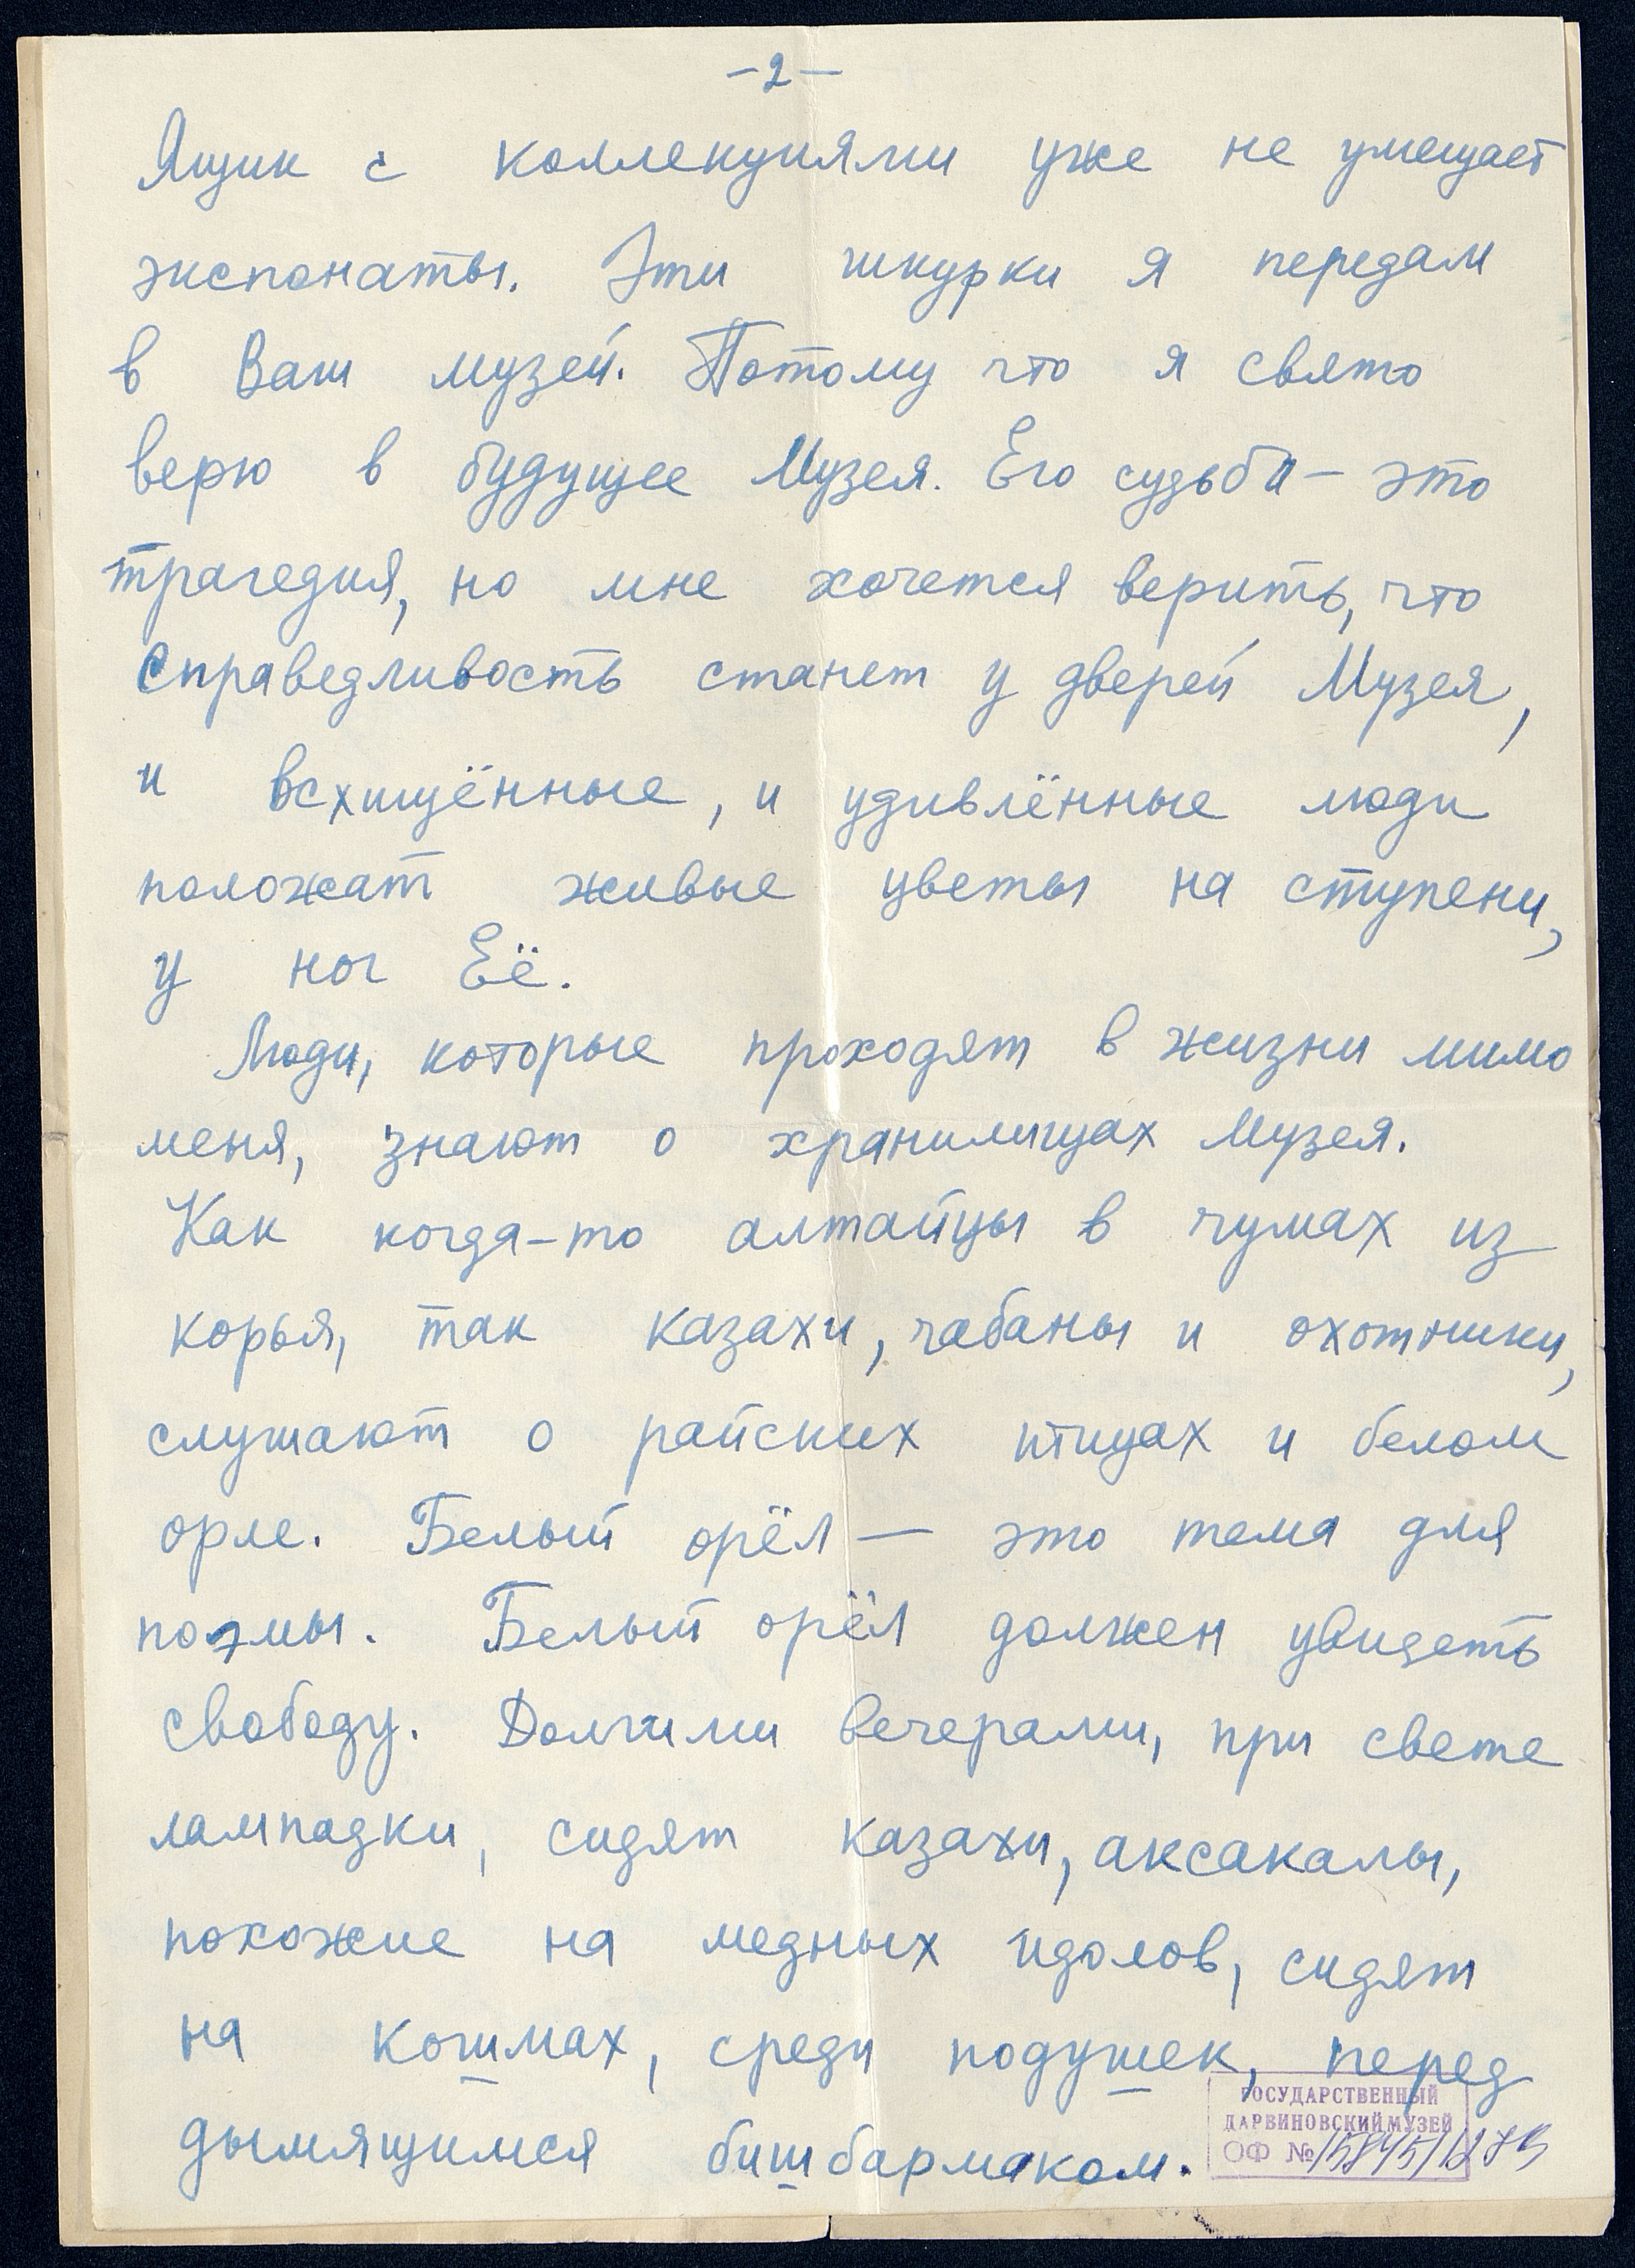 -2-
Ящик с коллекциями уже не умещает
экспонаты. Эти шкурки я передам
в Ваш музей. Потому что я свято
верю в будущее Музея. Его судьба — это
трагедия, но мне хочется верить, что
Справедливость станет у дверей Музея,
и всхищённые, и удивлённые люди
положат живые цветы на ступени,
у ног Её.
Люди, которые проходят в жизни мимо
меня, знают о хранилищах Музея.
Как когда-то алтайцы в чумах из
корья, так казахи, чабаны и охотники,
слушают о райских птицах и белом
орле. Белый орёл — это тема для
поэмы. Белый орёл должен увидеть
свободу. Долгими вечерами, при свете
лампадки, сидят казахи, аксакалы,
похожие на медных идолов, сидят
на кошмах, среди подушек, перед
дымящимся бишбармаком.
ГОСУДАРСТВЕННЫЙ
ДАРВИНОВСКИЙ МУЗЕЙ
ОФ №